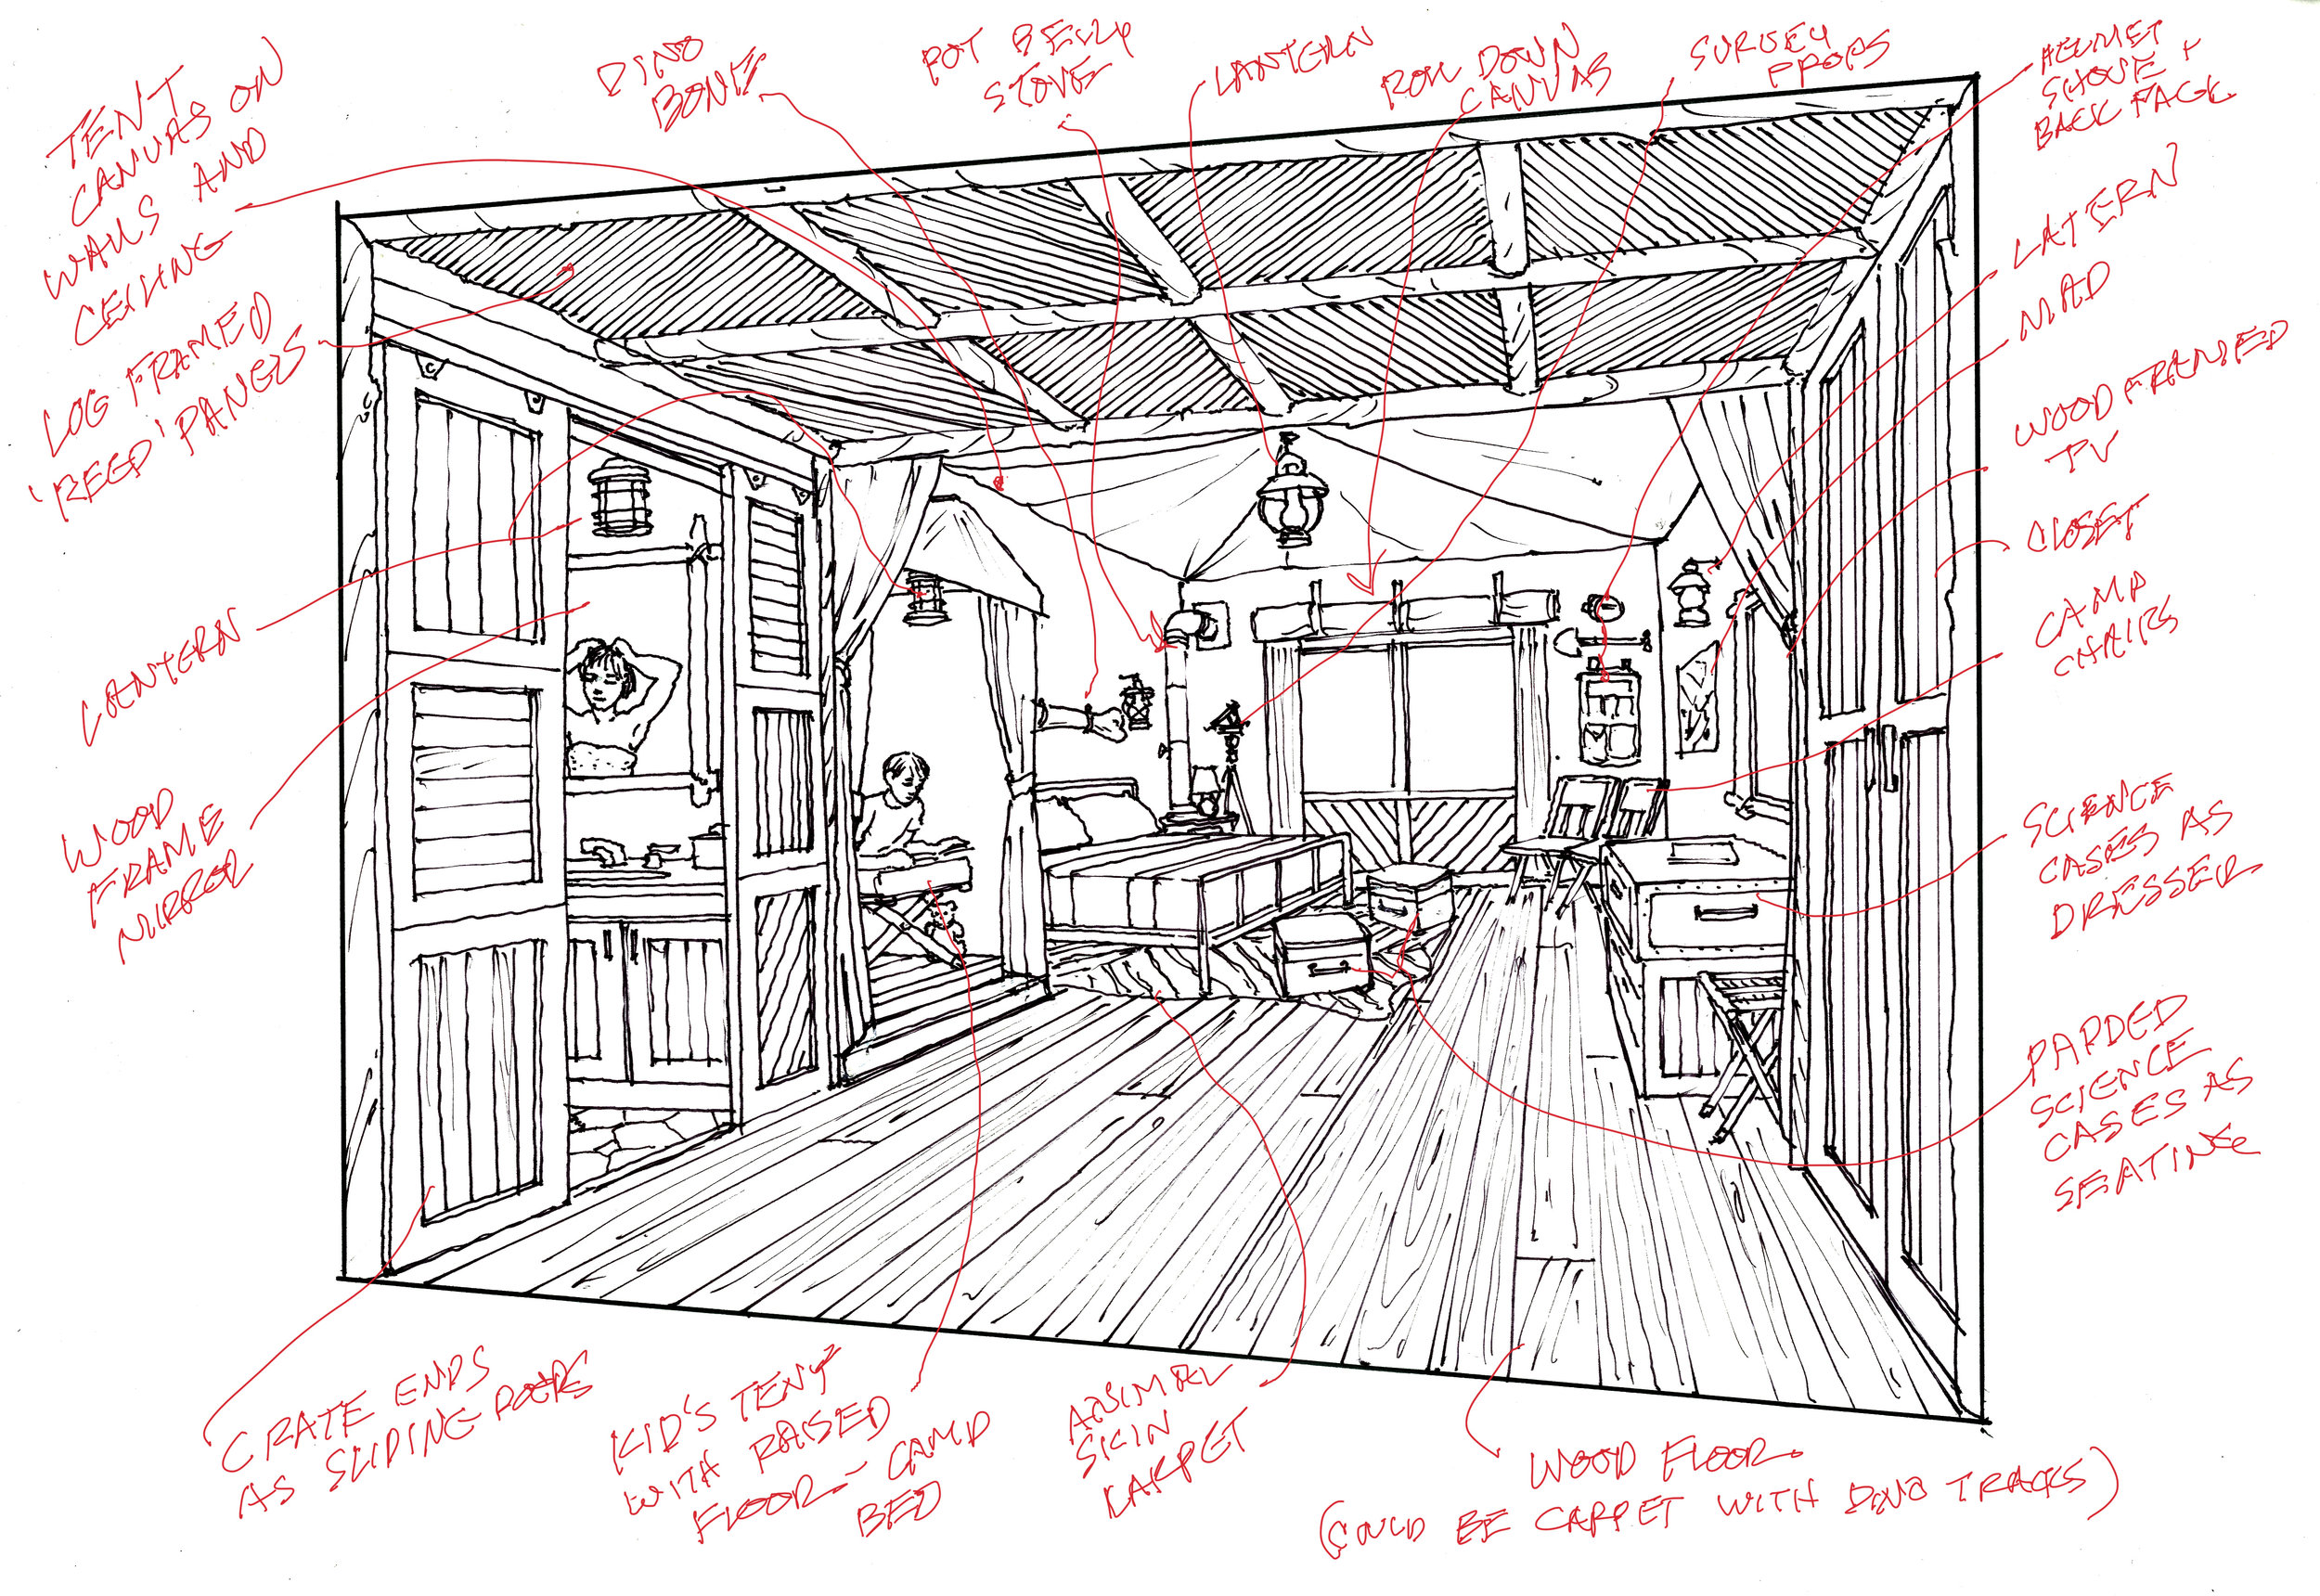 TENT
CANVAS ON
WALLS AND
CEILING
LOG FRAMED
'REED' PANELS
LANTERN
WOOD
FRAME
MIRROR
CRATE ENDS
AS SLIDING DOORS
DINO
BONE
POT BELLY
STOVE
LANTERN
ROLL DOWN
CANVAS
SURVEY
PROPS
HELMET
SHOVE +
BACK PACK
LATERN
MAP
WOOD FRAMED
TV
CLOSET
CAMP
CHAIRS
SCIENCE
CASES AS
DRESSER
PADDED
SCIENCE
CASES AS
SEATING
KID'S TENT
WITH RAISED
FLOOR - CAMP
BED
ANIMAL
SKIN
CARPET
WOOD FLOOR.
(COULD BE CARPET WITH DINO TRACKS)